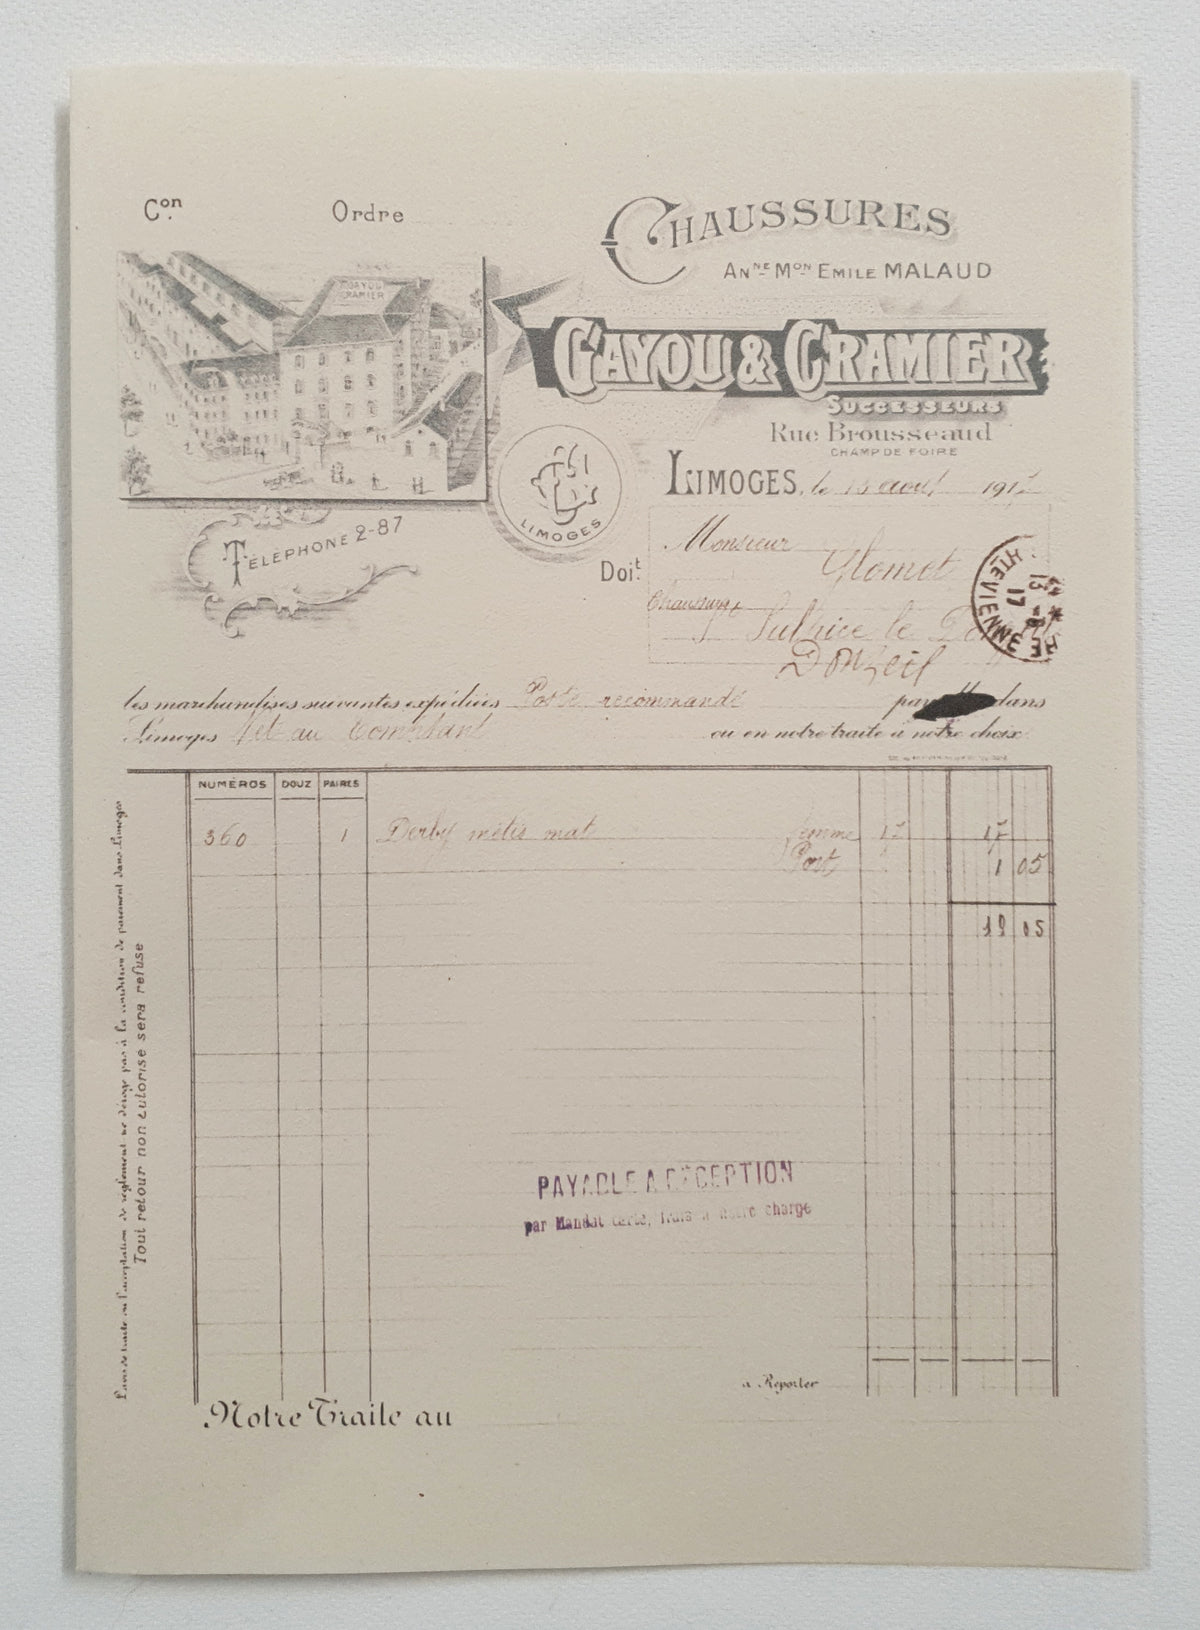 Con. Ordre
CHAUSSURES
ANNE MON EMILE MALAUD
GAYOU CRAMIER
GAYOU & CRAMIER
SUCCESSEURS
Rue Brousseaud
CHAMP DE FOIRE
LIMOGES, le août 191
TÉLÉPHONE 2-87
LIMOGES
Doit
Monsieur Glomet
Chaussures
Sulpice le
Donzeil
HTE VIENNE
13 -8
17
les marchandises suivantes expédiées Poste recommandé par dans
Limoges Net au Comptant ou en notre traite à notre choix
NUMÉROS DOUZ PAIRES
360 1 Derby métis mat femme 17 17
Port 1 05
18 05
PAYABLE A RÉCEPTION
par Mandat carte, frais à notre charge
L'avis de traite ou l'acceptation de règlement ne déroge pas à la condition de paiement dans Limoges
Tout retour non autorisé sera refusé
à Reporter
Notre Traite au